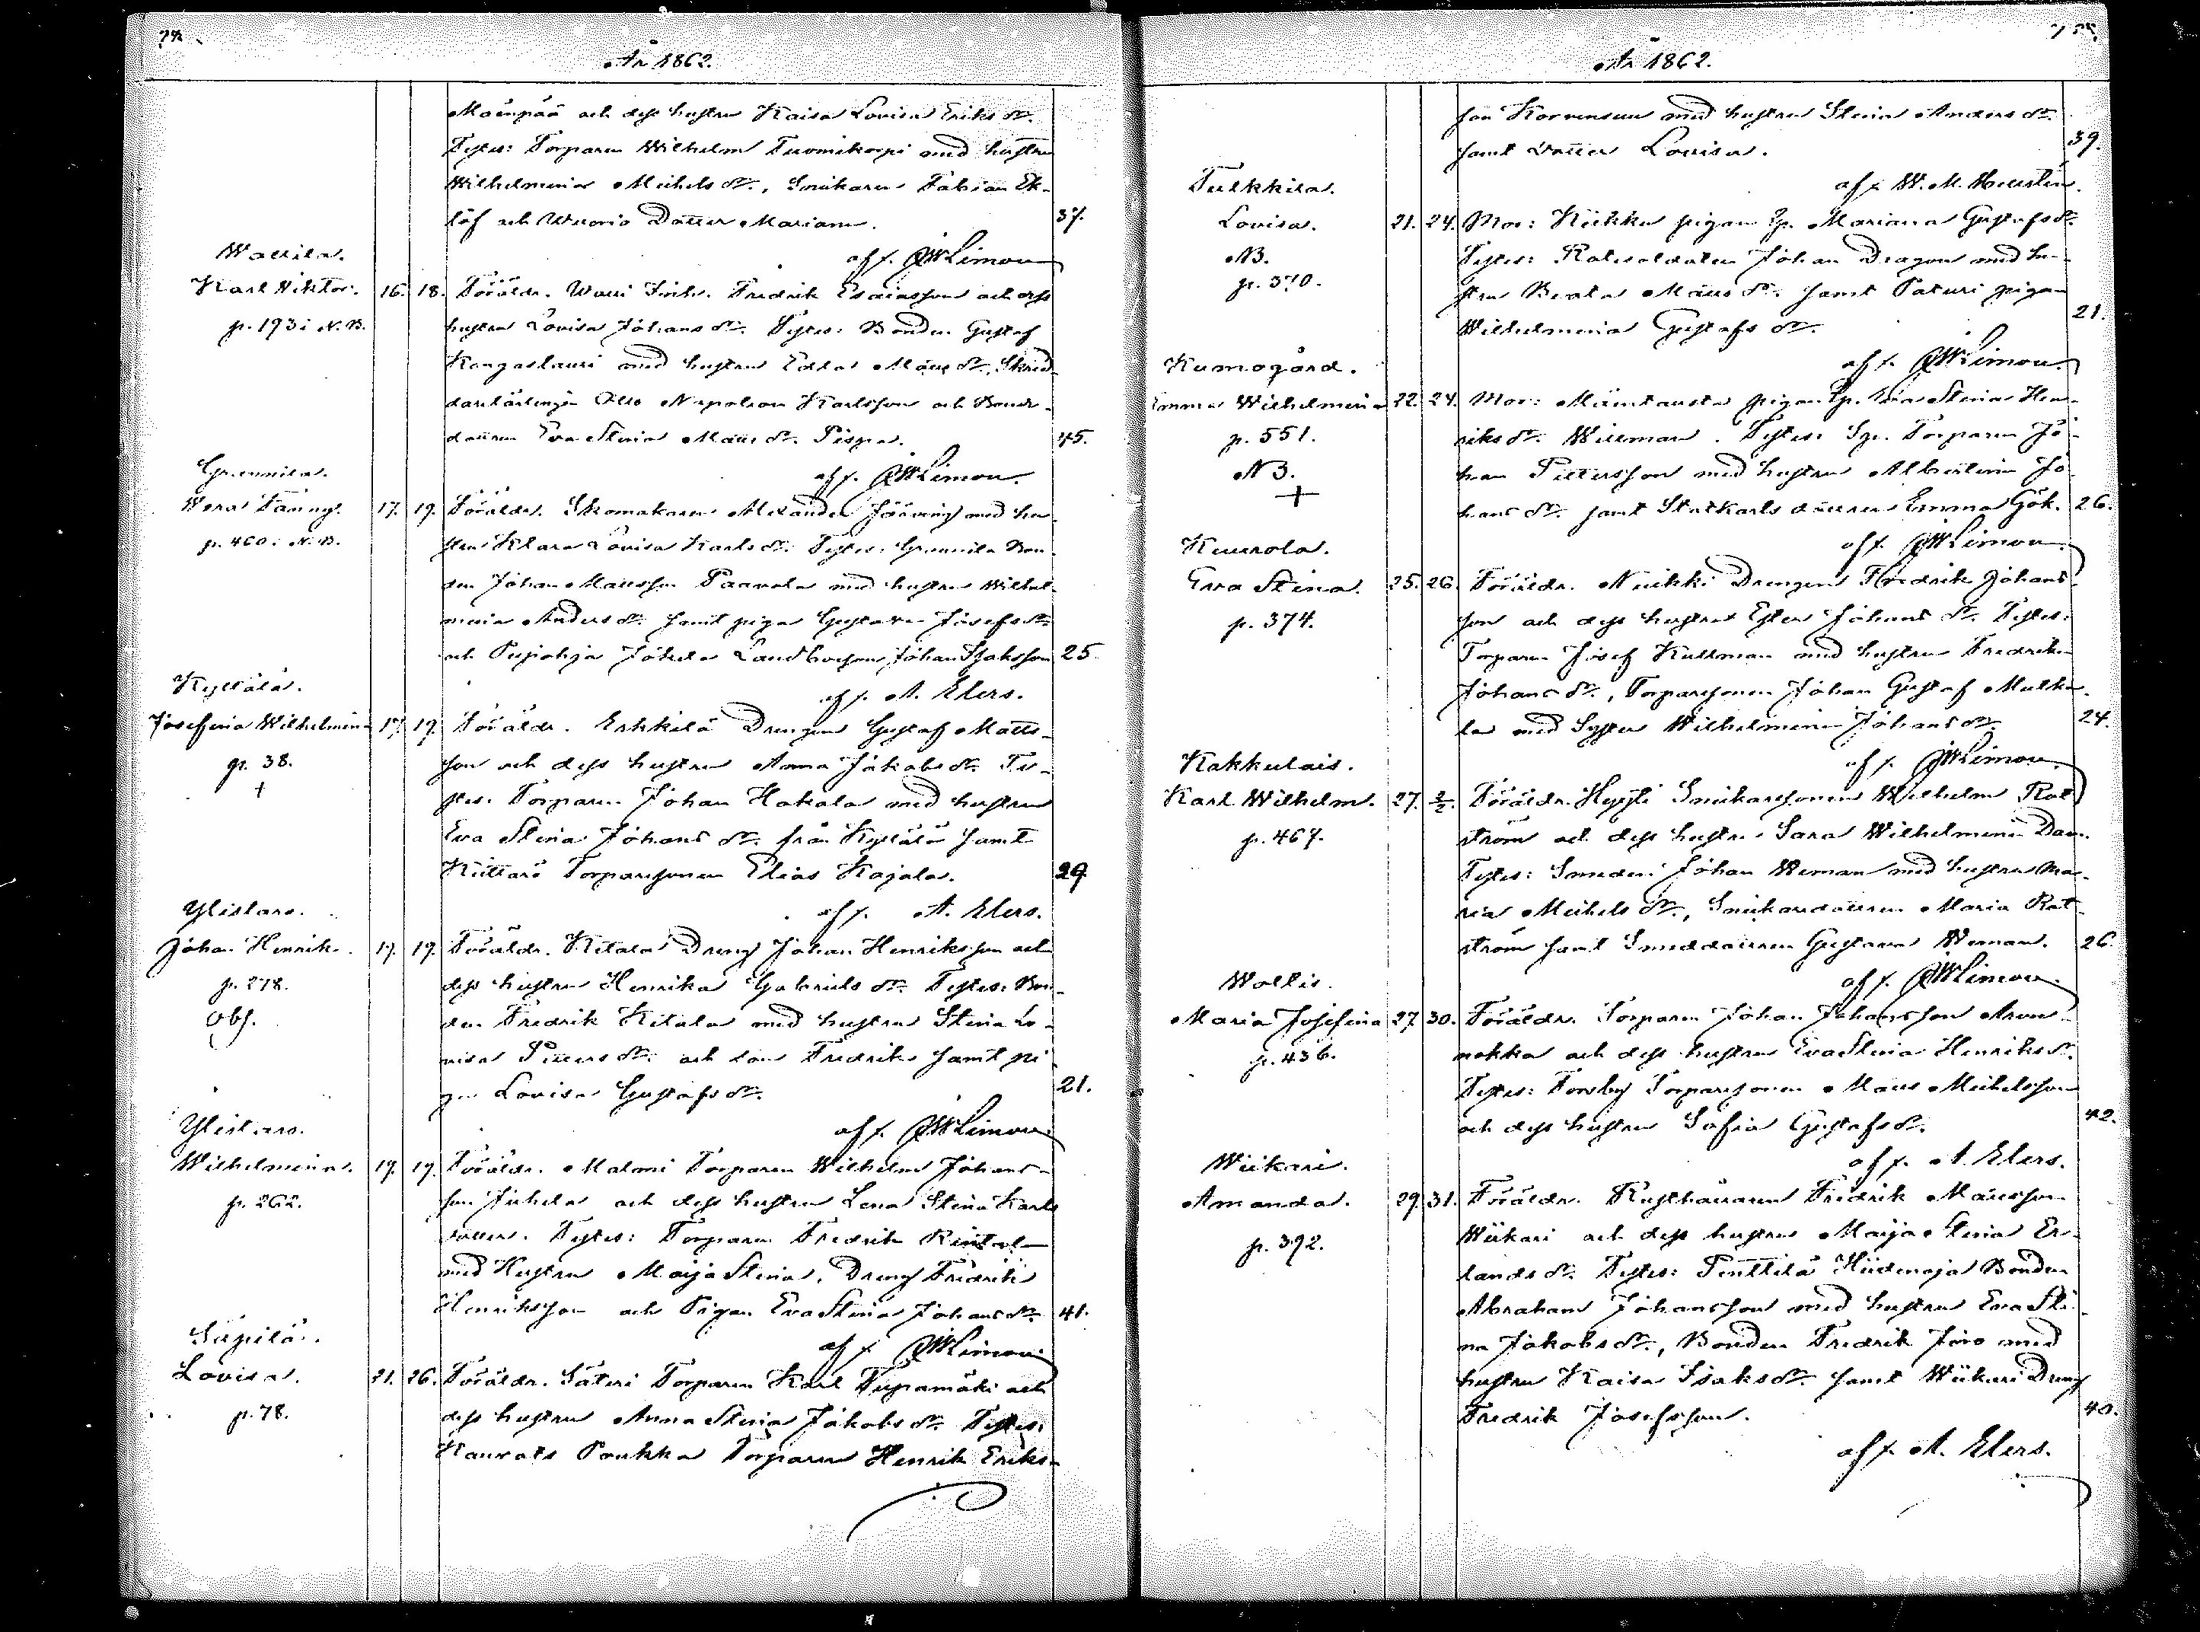 74.
År 1862.
Mäenpää och dess hustru Kaisa Lovisa Eriks dr.
Testes: Torparen Wilhelm Tuomikorpi med hustru
Wilhelmina Michels dr., Snikaren Fabian Ek-
löf och Dotter Mariana. 37.
af f. Limon
Wallila.
Karl Wiktor. 16. 18. Föräldr. Walli Inh. Fredrik Esaiasson och dess
p. 193; N.B. hustru Lovisa Johans dr. Testes: Bonden Gustaf
Kangaslauri med hustru Edla Matts dr., Skräd-
darelärlingen Otto Napoleon Karlsson och Bonde-
dottren Eva Stina Matts dr. Pispa. 45.
af f. Limon.
Grennila.
17. 19. Föräldr. Skomakaren Alexander med hu-
p. 460. N.B. stru Klara Lovisa Karls dr. Testes: Grennila Bon-
den Johan Mattsson Paavola med hustru Wilhel-
mina Anders dr. samt piga Gustava Josefs dr.
och Johan Isaksson 25
af f. A. Elers.
Kyttälä.
Josefina Wilhelmina 17. 19. Föräldr. Erkkilä Drengen Gustaf Matts-
p. 38. son och dess hustru Anna Jakobs dr. Te-
+ stes: Torparen Johan Hakala med hustru
Eva Stina Johans dr. från Kyttälä samt
Torparesonen Elias Kajala. 29
af f. A. Elers.
Ylistaro.
Johan Henrik. 17. 19. Föräldr. Kitala Dreng Johan Henriksson och
p. 278. dess hustru Henrika Gabriels dr. Testes: Bon-
Obs. den Fredrik Kitala med hustru Stina Lo-
visa dr. och son Fredrik samt pi-
gan Lovisa Gustafs dr. 21.
af f. Limon
Ylistaro.
Wilhelmina. 17. 19. Föräldr. Malmi Torparen Wilhelm Johans-
p. 262. son Juhela och dess hustru Lena Stina Karls
dotter. Testes: Torparen Fredrik Rintala
med Hustru Maija Stina, Dreng Fredrik
Henriksson och Pigan Eva Stina Johans dr. 41.
af f. Limon
Säpilä.
Lovisa. 21. 26. Föräldr. Säteri Torparen Karl och
p. 78. dess hustru Anna Stina Jakobs dr. Testes:
Kauvats Torparen Henrik Eriks-
År 1862.
son Korvensuu med hustru Stina Anders dr.
samt dotter Lovisa. 39.
af f. W. M.
Tulkkila.
Lovisa. 21. 24. Mor: pigan Mariana Gustafs dr.
NB. Testes: Rotesoldaten Johan Dragon med hu-
p. 370. stru Beata Matts dr. samt Paturi pigan
Wilhelmina Gustafs dr. 21.
af f. Limon.
Kumogård.
Emma Wilhelmina 22. 24. Mor: pigan Stina Hen-
p. 551. riks dr. Willman. Testes: Torparen Jo-
NB. han Pettersson med hustru Albertina Jo-
+ hans dr. samt Statkarls dottren Emma Gök. 26.
af f. Limon.
Kuurola.
Eva Stina. 25. 26. Föräldr. Drengen Fredrik Johans-
p. 374. son och dess hustru Ester Johans dr. Testes:
Torparen Josef Kullman med hustru Fredrika
Johans dr., Torparesonen Johan Gustaf
med Syster Wilhelmina Johans dr. 24.
af f. Limon.
Kakkulais.
Karl Wilhelm. 27. 2/2. Föräldr. Snikaresonen Wilhelm Rot-
p. 467. ström och dess hustru Sara Wilhelmina
Testes: Smeden Johan Weman med hustru Ma-
ria Michels dr., Snikaredottren Maria Rot-
ström samt Smeddottren Gustava Weman. 26.
af f. Limon.
Woltis.
Maria Josefina 27. 30. Föräldr. Torparen Johan Johansson
p. 436. och dess hustru Eva Stina Henriks dr.
Testes: Forsby Torparesonen Matts Michelsson
och dess hustru Sofia Gustafs dr. 42.
af f. A. Elers.
Wiikari.
Amanda. 29. 31. Föräldr. Rusthållaren Fredrik Mattsson
p. 392. Wiikari och dess hustru Maija Stina Er-
lands dr. Testes: Penttilä Hiidenoja Bonden
Abraham Johansson med hustru Eva Sti-
na Jakobs dr., Bonden Fredrik med
hustru Kaisa Isaks dr. samt Wiikari Dreng
Fredrik Josefsson. 40.
af f. A. Elers.